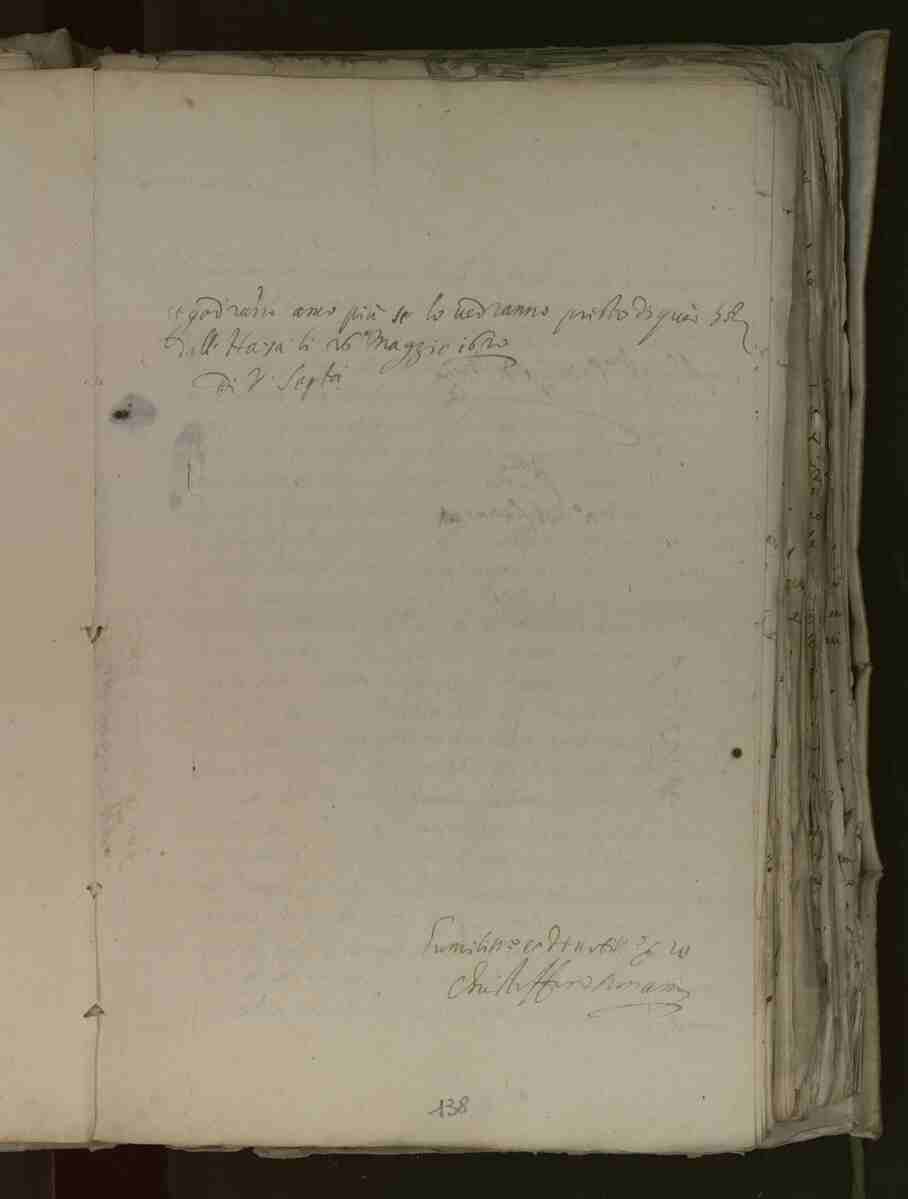 e godranno anco più se lo vedranno presto di quà
Dall Haya li 26 Maggio 1620
Di V. Ser.tà
humiliss.o et devotiss.o
Christofforo Suriano
138